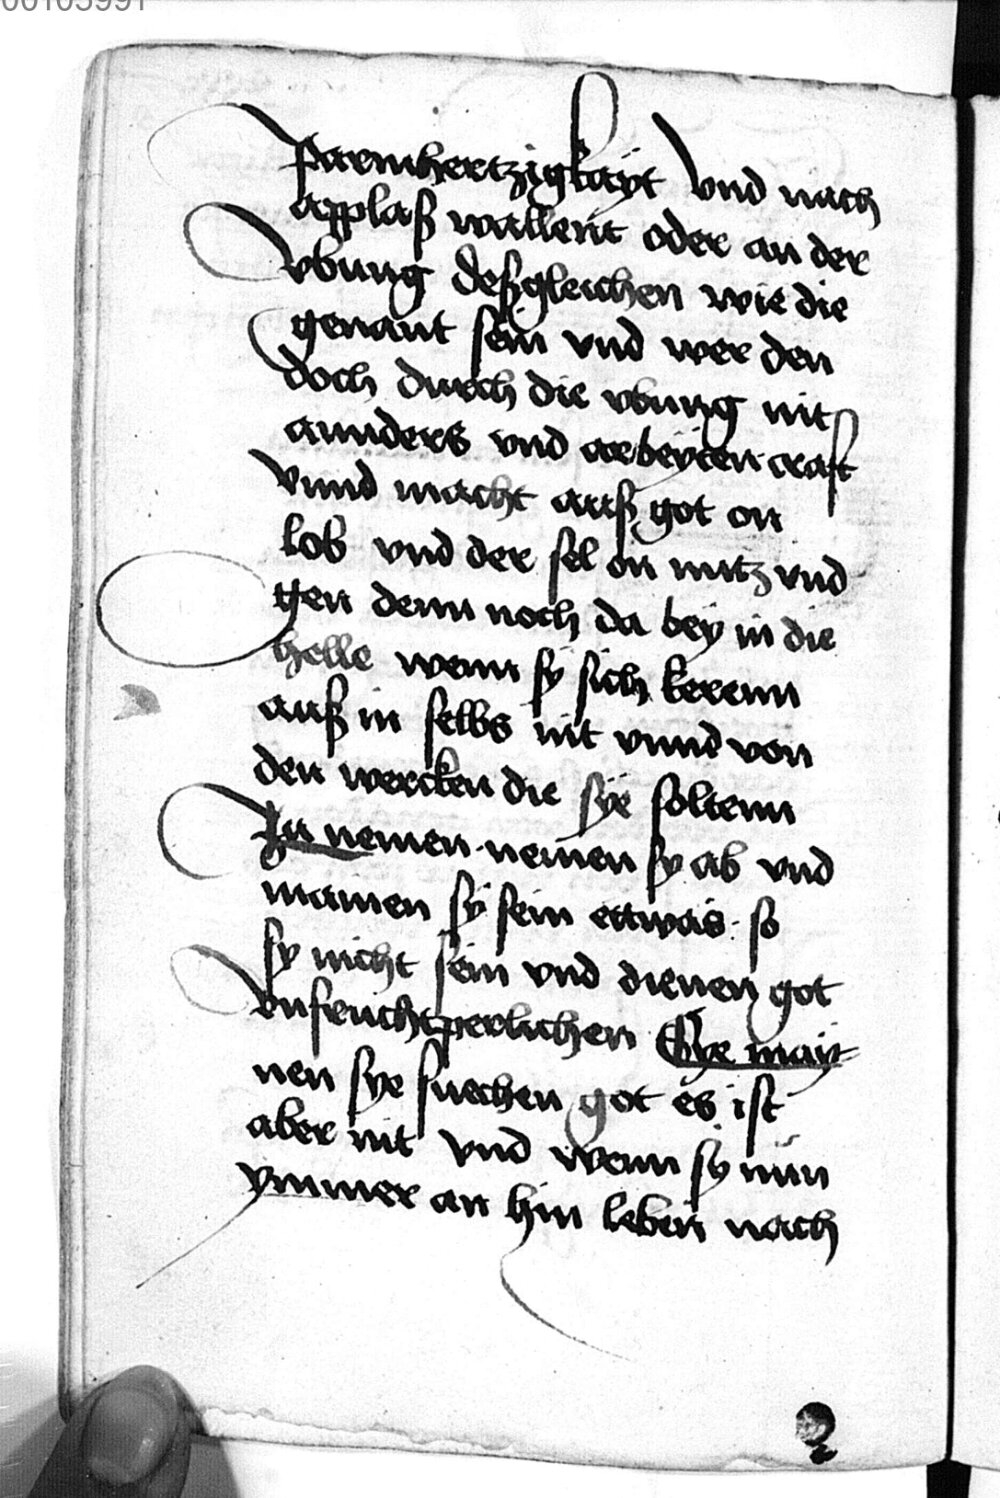 00103991
parmhertzigkayt vnd nach
applaß wallent oder an der
vbung deßgleichen wie die
genant sein vnd wer den
doch durch die vbung nit
annders vnd arbeyten craft
vnnd macht auß got on
lob vnd der sel on nutz vnd
gen denn noch da bey in die
helle wenn sy sich kerenn
auß in selbs nit vnnd von
den wercken die sye soltenn
Zu nemen nemen sy ab vnd
mainen sy sein ettwas so
sy nicht sein vnd dienen got
vnfruchtperlichen Sye may
nen sye suechen got es ist
aber nit vnd wenn sy nun
ymmer an hin leben nach